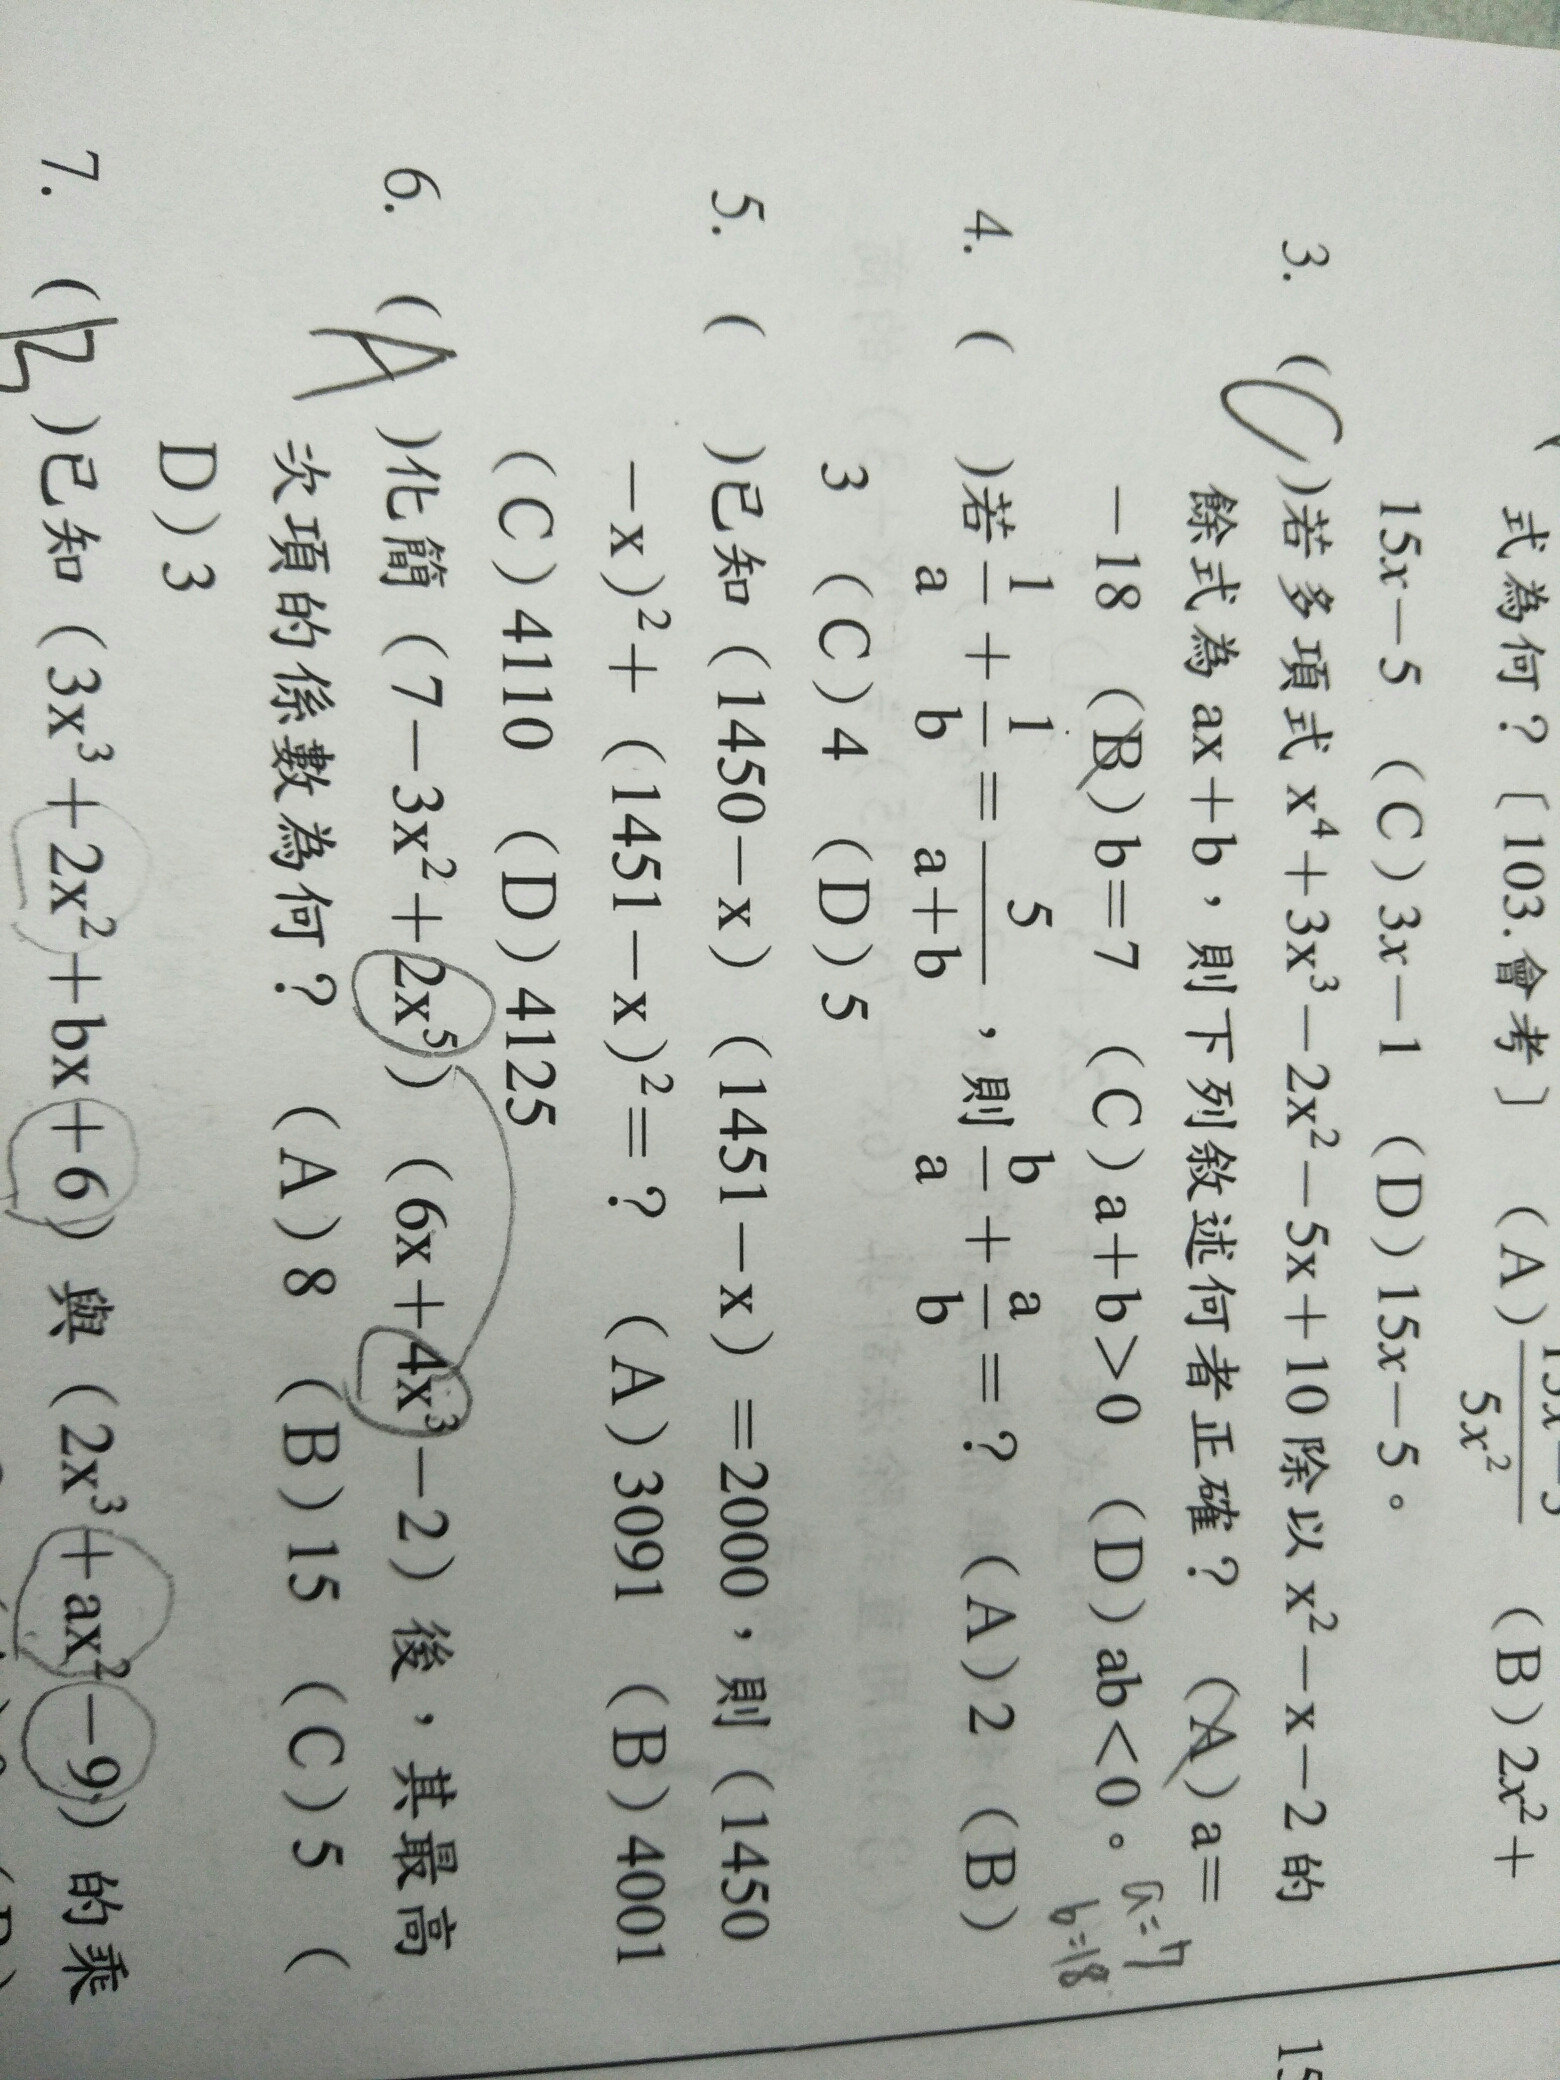 式為何？〔103.會考〕 (A) 15x－5/5x² (B) 2x²＋
15x－5 (C) 3x－1 (D) 15x－5。
3. (C)若多項式 x⁴＋3x³－2x²－5x＋10 除以 x²－x－2 的
餘式為 ax＋b，則下列敘述何者正確？ (A) a＝
－18 (B) b＝7 (C) a＋b＞0 (D) ab＜0。
a=7
b=18
4. ( )若 1/a ＋ 1/b ＝ 5/a+b ，則 b/a ＋ a/b ＝？ (A) 2 (B)
3 (C) 4 (D) 5
5. ( )已知（1450－x）（1451－x）＝2000，則（1450
－x)²＋（1451－x)²＝？ (A) 3091 (B) 4001
(C) 4110 (D) 4125
6. (A)化簡（7－3x²＋2x⁵）（6x＋4x³－2）後，其最高
次項的係數為何？ (A) 8 (B) 15 (C) 5 (
D) 3
7. (B)已知（3x³＋2x²＋bx＋6）與（2x³＋ax²－9）的乘
15